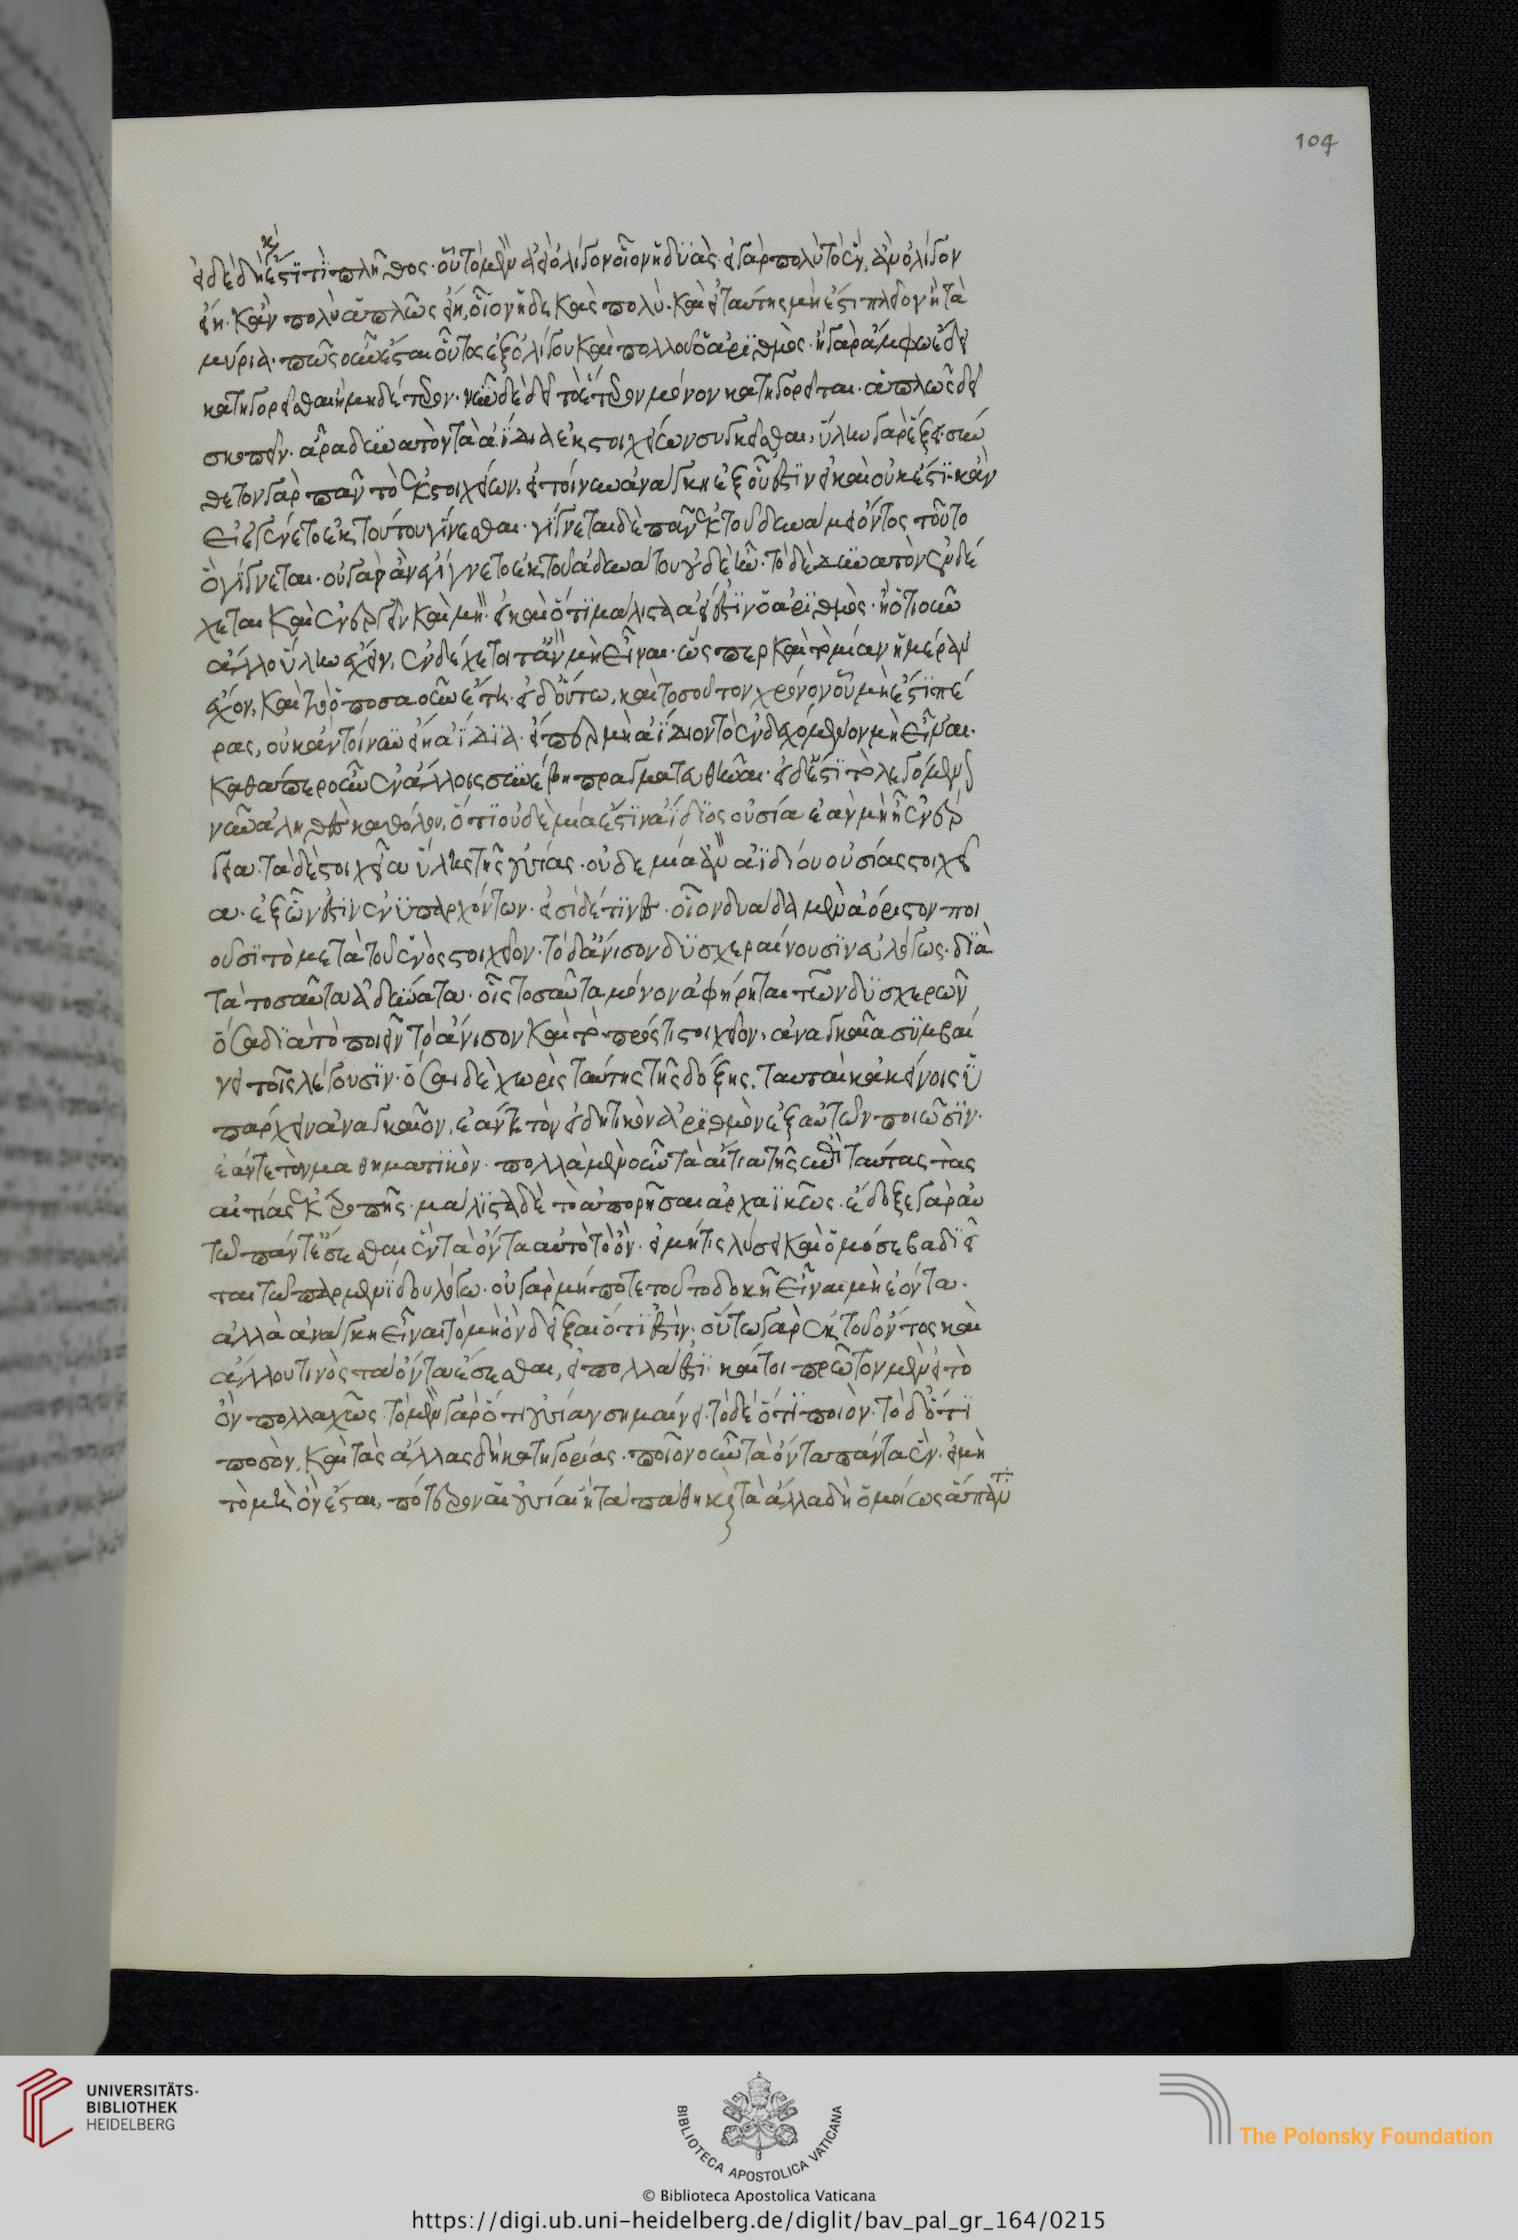 εἰ δὲ δὴ καὶ ἔστϊ τϊ πλῆθος· οὗ τὸ μὲν ἀεὶ ὀλίγον οἷον ἡ δυὰς· εἰ γὰρ πολὺ τὸ ἓν, ἂν ὀλίγον
εἴη· κἂν πολὺ ἁπλῶς εἴη, οἷον ἡ δεκὰς πολύ· καὶ εἰ ταύτης μὴ ἔστι πλεῖον ἢ τὰ
μύρια· πῶς οὖν ἔσται οὕτως ἐξ ὀλίγου καὶ πολλοῦ ὁ ἀρϊθμὸς· ἢ γὰρ ἄμφω ἔδει
κατηγορεῖσθαι ἢ μηδέτερον· νῦν δὲ δεῖ τὸ ἕτερον μόνον κατηγορεῖται· ἁπλῶς δεῖ
σκοπεῖν· ἆρα δυνατὸν τὰ ἀΐδια ἐκ στοιχείων συγκεῖσθαι, ὕλην γὰρ ἕξει· σύν
θετον γὰρ πᾶν τὸ ἐκ στοιχείων, εἰ τοίνυν ἀνάγκη ἐξ οὗ ἐστϊν εἰ καὶ οὐκ ἔστϊ· κἂν
εἰ ἐγένετο ἐκ τούτου γίνεσθαι· γίγνεται δὲ πᾶν ἐκ τοῦ δυνάμει ὄντος τοῦτο
ὃ γίγνεται· οὐ γὰρ ἂν ἐγίγνετο ἐκ τοῦ ἀδυνάτου οὐδὲ ἦν· τὸ δὲ δυνατὸν ἐνδέ
χεται καὶ ἐνεργεῖν καὶ μὴ· εἰ καὶ ὅτϊ μάλιστα ἀεί ἐστϊν ὁ ἀρϊθμὸς· ἢ ὁτιοῦν
ἄλλο ὕλην ἔχον, ἐνδέχεται τἂν μὴ εἶναι· ὥσπερ καὶ τὸ μίαν ἡμέραν
ἔχον, καὶ τὸ ὁποσαοῦν ἔτη· εἰ δ' οὕτω, καὶ τοσοῦτον χρόνον οὗ μὴ ἔστϊ πέ
ρας, οὐκ ἂν τοίνυν εἴη ἀΐδϊα· εἴπερ μὴ ἀΐδιον τὸ ἐνδεχόμενον μὴ εἶναι·
καθάπερ οὖν ἐν ἄλλοις συνέβη πραγματευθῆναι· εἰ δέ ἐστϊ τὸ λεγόμενον
νῦν ἀληθὲς καθόλου, ὅτϊ οὐδὲ μία ἐστϊν ἀΐδϊος οὐσία ἐὰν μὴ ᾖ ἐνέρ
γεια· τὰ δὲ στοιχεῖα ὕλη τῆς οὐσίας· οὐδὲ μία ἂν ἀϊδίου οὐσίας στοιχεῖ
α· ἐξ ὧν ἐστϊν ἐνϋπαρχόντων· εἰσὶ δέ τϊνες οἳ ον δυάδα μὲν ἀόριστον ποι
οῦσϊ τὸ μετὰ τοῦ ἑνὸς στοιχεῖον· τὸ δ' ἄνισον δϋσχεραίνουσϊν εὐλόγως· δϊὰ
τὰ τοσαῦτα ἀδύνατα· οἷς τοσαῦτα μόνον ἀφήρηται τῶν δϋσχερῶν
ὅσα δϊὰ τὸ ποιεῖν τὸ ἄνισον καὶ τὸ πρός τι στοιχεῖον, ἀναγκαῖα σϋμβαί
νει τοῖς λέγουσϊν· ὅσαι δὲ χωρὶς ταύτης τῆς δόξης, ταῦτα κἀκείνοις ὑ
πάρχειν ἀναγκαῖον, ἐάντε τὸν εἰδητικὸν ἀρϊθμὸν ἐξ αὐτῶν ποιῶσϊν·
ἐάντε τὸν μαθηματϊκὸν· πολλὰ μὲν οὖν τὰ αἴτια τῆς ἐπὶ ταύτας τὰς
αἰτίας ἐκτροπῆς· μάλϊστα δὲ τὸ ἀπορῆσαι ἀρχαϊκῶς· ἔδοξε γὰρ αὐ
τοῖς πάντ' ἔσεσθαι ἓν τὰ ὄντα αὐτὸ τὸ ὂν· εἰ μή τις λύσει καὶ ὁμόσε βαδϊεῖ
ται τῷ παρμενίδου λόγω· οὐ γὰρ μήποτε τοῦτο δοκῇ εἶναι μὴ ἐόντα·
ἀλλὰ ἀνάγκη εἶναι τὸ μὴ ὂν δεῖξαι ὅτϊ ἐστὶν· οὕτω γὰρ ἐκ τοῦ ὄντος καὶ
ἄλλου τινὸς τὰ ὄντα ἔσεσθαι, εἰ πολλά ἐστϊ· καίτοι πρῶτον μὲν εἰ τὸ
ὂν πολλαχῶς· τὸ μὲν γὰρ ὅτι οὐσίαν σημαίνει· τὸ δὲ ὅτϊ ποιὸν· τὸ δ' ὅτϊ
ποσὸν, καὶ τὰς ἄλλας δὴ κατηγορίας· ποῖον οὖν τὰ ὄντα πάντα ἓν· εἰ μὴ
τὸ μὴ ὂν ἔσται, πότερον αἱ οὐσίαι ἢ τὰ πάθη καὶ τὰ ἄλλα δὴ ὁμοίως ἅπαντα
104
UNIVERSITÄTS-
BIBLIOTHEK
HEIDELBERG
BIBLIOTECA APOSTOLICA VATICANA
The Polonsky Foundation
© Biblioteca Apostolica Vaticana
https://digi.ub.uni-heidelberg.de/diglit/bav_pal_gr_164/0215